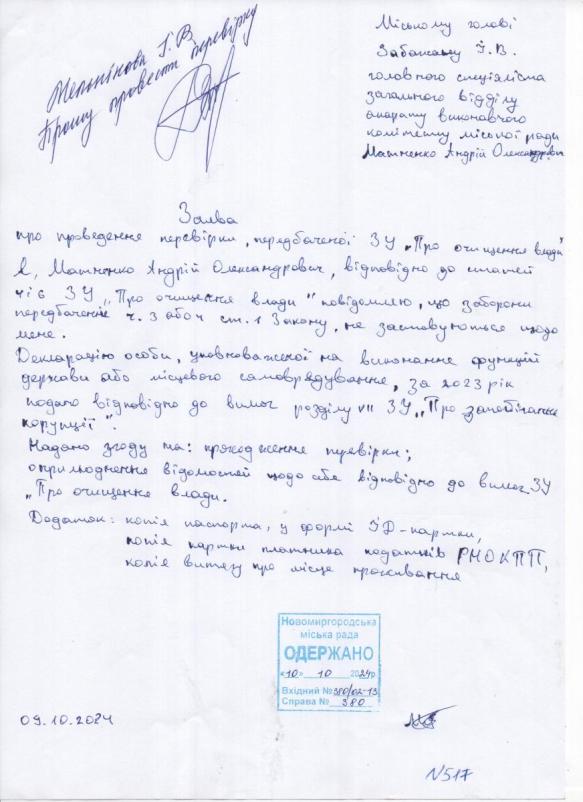 Мельнікова Т. В
Прошу провести перевірку
Міському голові
Забажану І. В.
головного спеціаліста
загального відділу
апарату виконавчого
комітету міської ради
Матненко Андрій Олександрович
Заява
про проведення перевірки, передбаченої ЗУ „Про очищення влади"
Я, Матненко Андрій Олександрович, відповідно до статей
4 і 6 ЗУ „Про очищення влади" повідомляю, що заборони
передбачені ч. 3 або 4 ст. 1 Закону, не застосовуються щодо
мене.
Декларацію особи, уповноваженої на виконання функцій
держави або місцевого самоврядування, за 2023 рік
подано відповідно до вимог розділу VII ЗУ „Про запобігання
корупції".
Надаю згоду на: проходження перевірки;
оприлюднення відомостей щодо себе відповідно до вимог ЗУ
„Про очищення влади.
Додаток: копія паспорта, у формі ID-картки,
копія картки платника податків РНОКПП,
копія витягу про місце проживання
Новомиргородська
міська рада
ОДЕРЖАНО
«10» 10 2024р
Вхідний № 380/02-13
Справа № 380
09.10.2024
N517